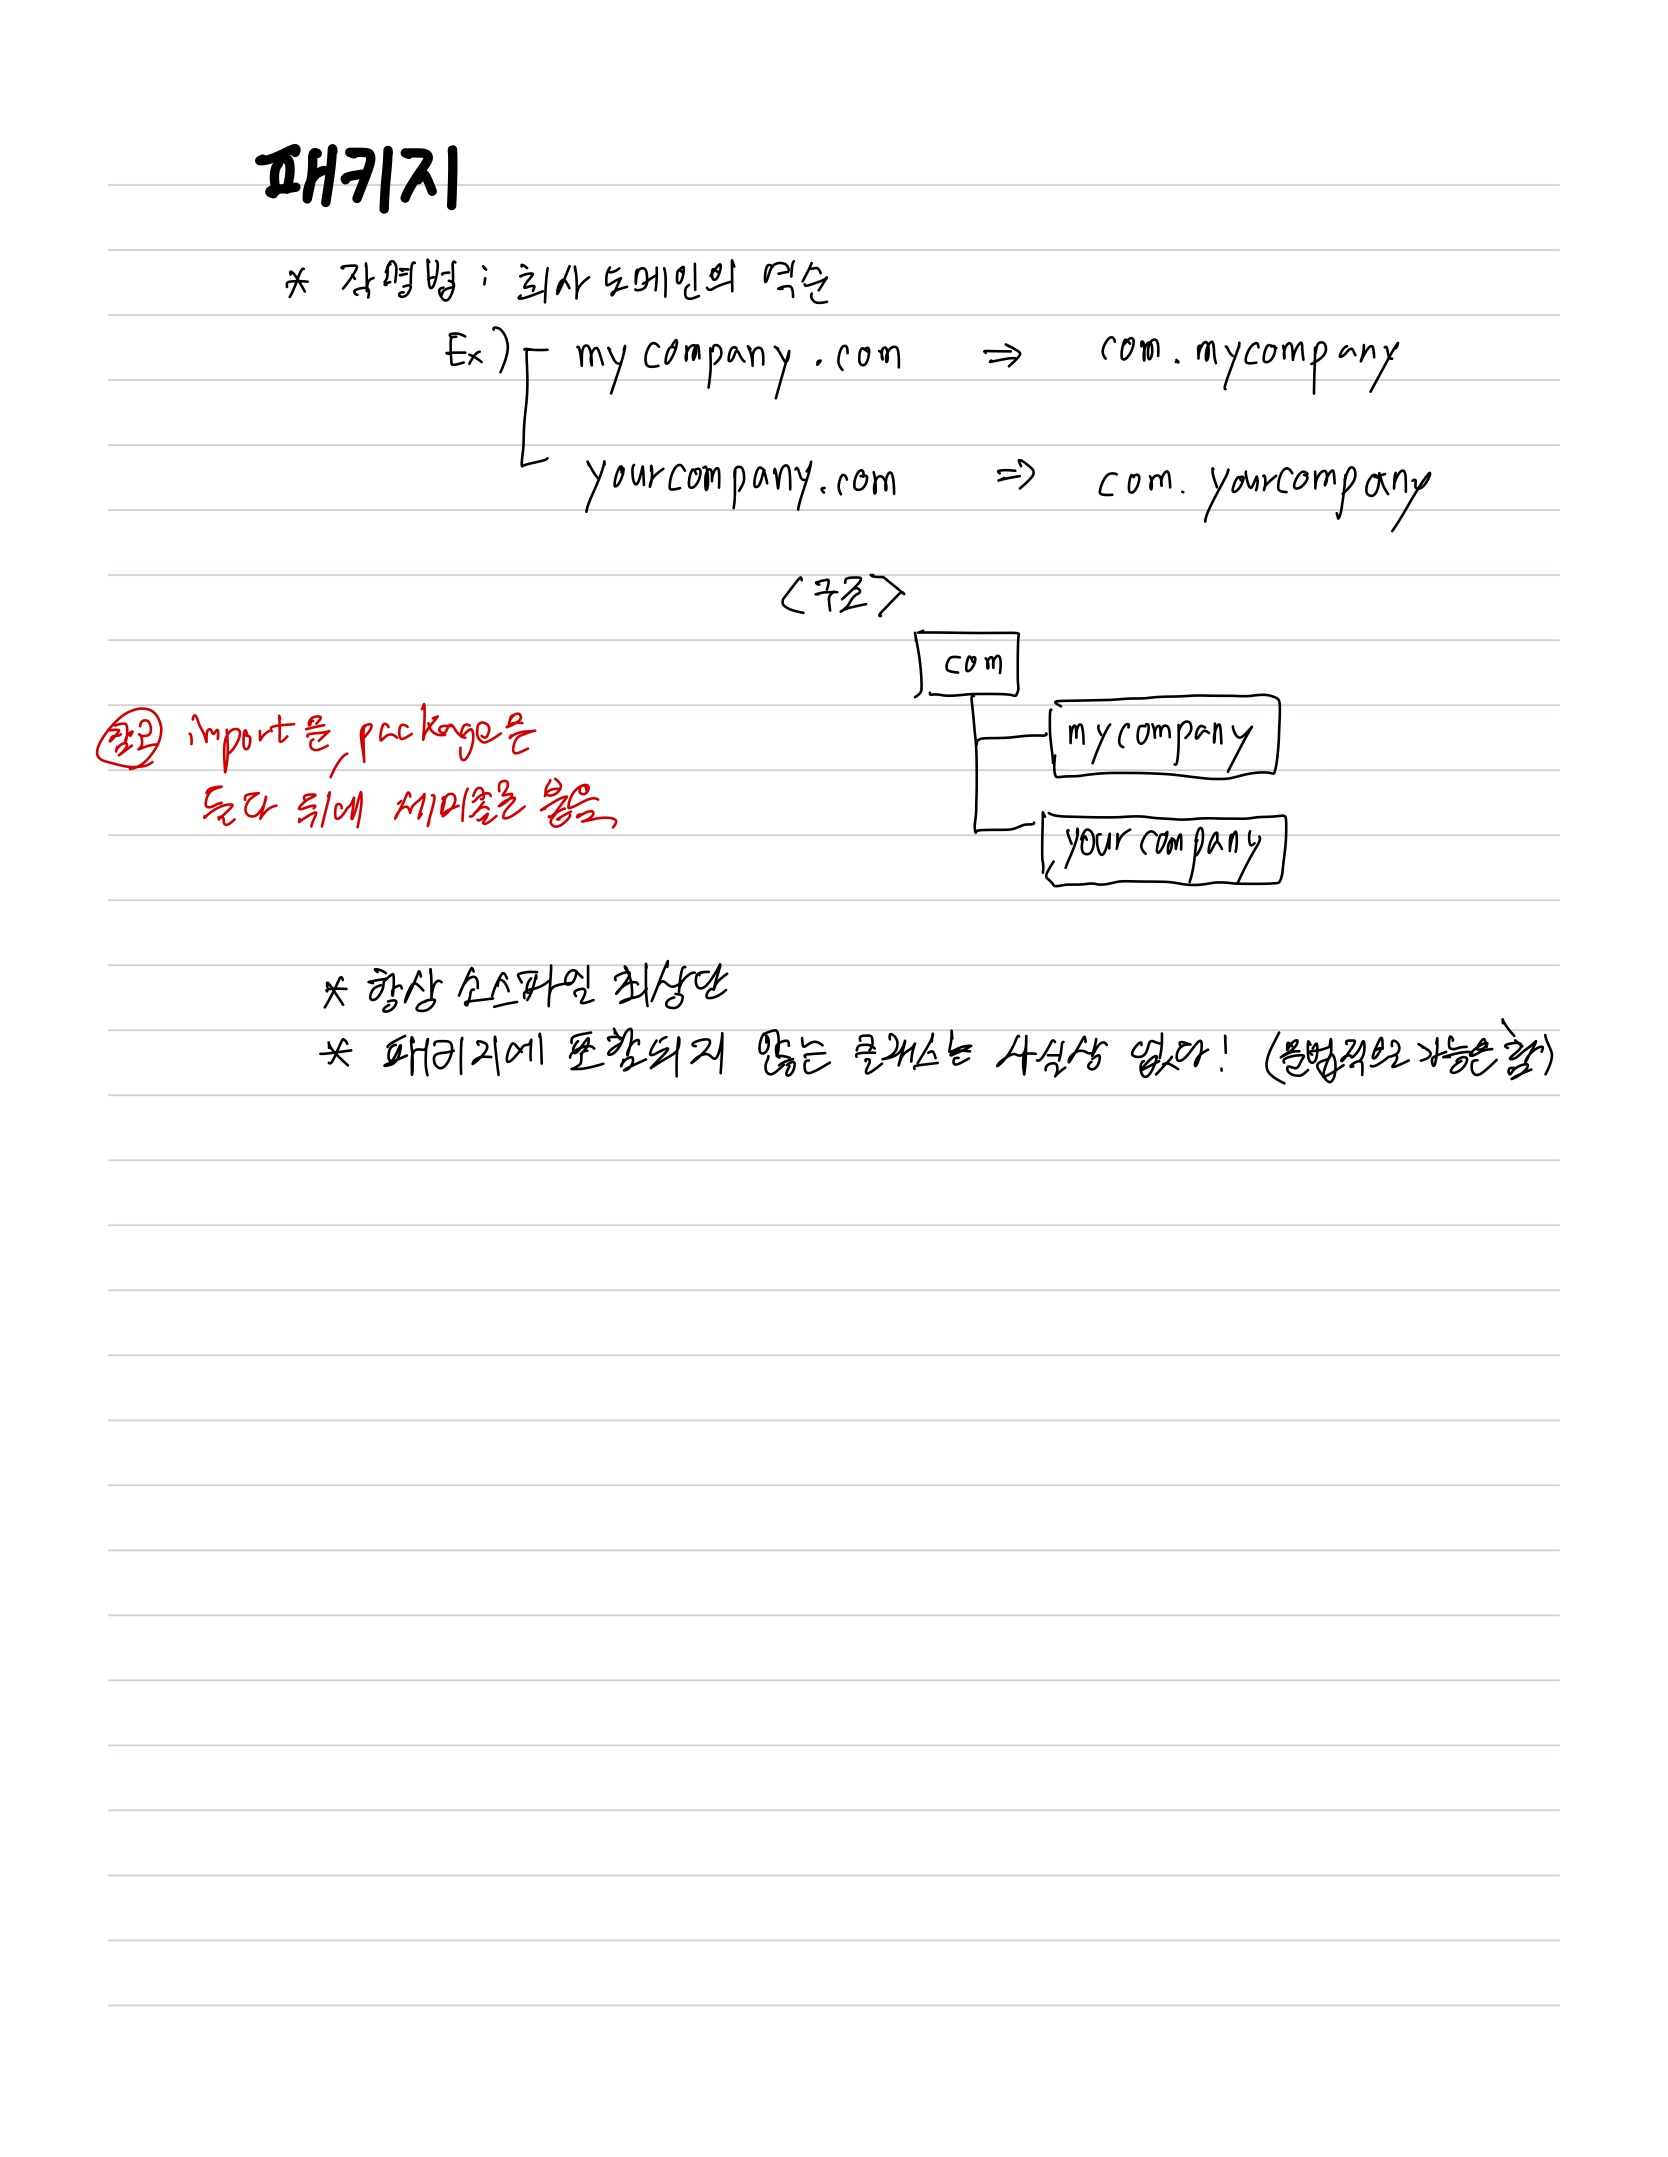 패키지
* 작명법 : 회사 도메인의 역순
Ex) mycompany.com ⇒ com.mycompany
yourcompany.com ⇒ com.yourcompany
<구조>
com
mycompany
yourcompany
참고 import문, package문
둘다 뒤에 세미콜론 붙음
* 항상 소스파일 최상단
* 패키지에 포함되지 않는 클래스는 사실상 없다! (문법적으로 가능은 함)